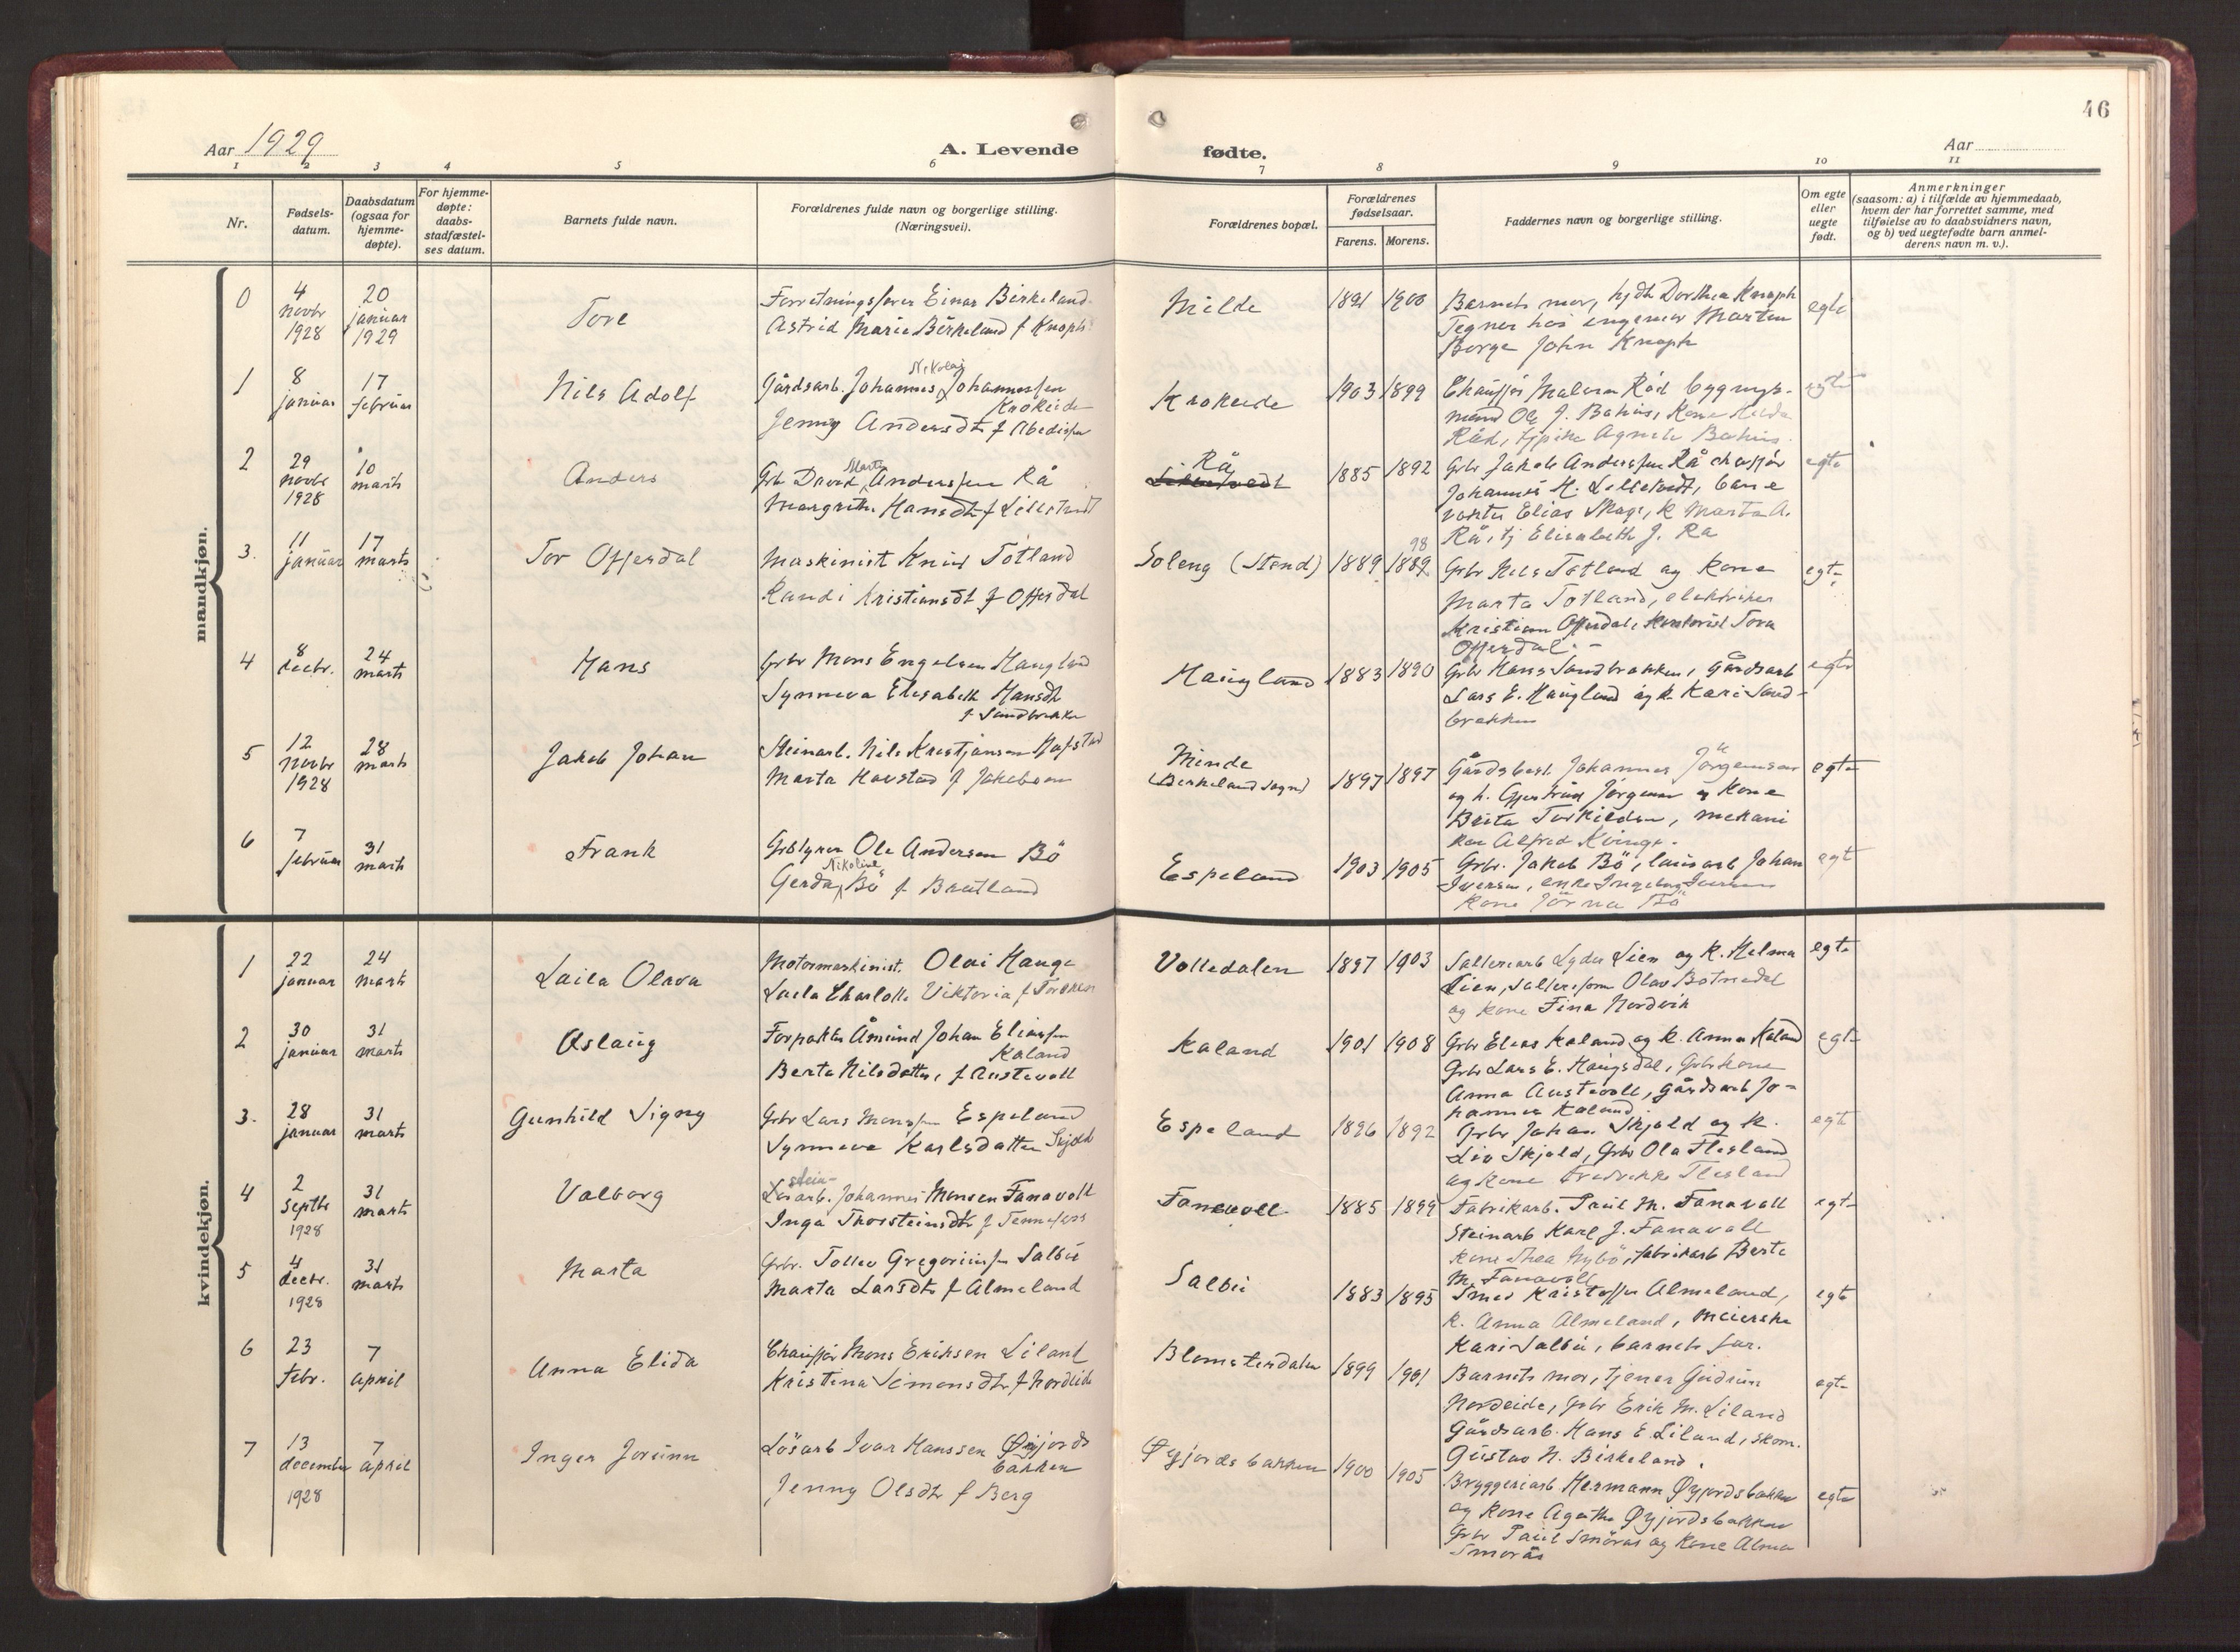 46
Aar 1929
A. Levende
fødte.
Aar
1 2 3 4 5 6 7 8 9 10 11
Nr.
Fødsels-
datum.
Daabsdatum
(ogsaa for
hjemme-
døpte).
For hjemme-
døpte:
daabs-
stadfæstel-
ses datum.
Barnets fulde navn.
Forældrenes fulde navn og borgerlige stilling.
(Næringsvei).
Forældrenes bopæl.
Forældrenes
fødselsaar.
Farens. Morens.
Faddernes navn og borgerlige stilling.
Om egte
eller
uegte
født.
Anmerkninger
(saasom: a) i tilfælde av hjemmedaab,
hvem der har forrettet samme, med
tilføielse av to daabsvidners navn,
og b) ved uegtefødte barn anmel-
derens navn m. v.).
mandkjøn.
0
4
novbr
1928
20
januar
1929
Tore
Forretningsfører Einar Birkeland
Astrid Marie Birkeland f Knoph
Milde
1891 1900
Barnets mor, hjdh Dorthea Knoph
Tegner hos ingeniør Marten
Borge John Knoph
egte
1
8
januar
17
februar
Nils Adolf
Nikolai
Gårdsarb. Johannes Johannessen
Krokeide
Jenny Andersdtr f
Krokeide
1903 1899
Chauffør Råd bygnings-
mand Ole J. Bahus, Kone Hilda
Råd, Agnete Bahus
egte
2
29
novbr
1928
10
marts
Anders
Grb David Anderssen Rå
Margrethe Hansdtr f Lilletvedt
Rå
1885 1892
Grbr Jakob Anderssen Rå chaffør
Johannes H. Lilletvedt, bane
vokter Elias Skage, k Marta A.
Rå, tj Elisabeth J. Rå
egte
3.
11
januar
17
marts
Tor Offerdal
Maskinist Knut Totland
Randi Kristiansdt f Offerdal
Soleng (Stend)
1889
98
1889
Grbr Nils Totland og kone
Marta Totland, elektriker
Kristian Offerdal, Kontorist Tora
Offerdal. -
egte
4
8
decbr.
24
marts
Hans
Grbr Mons Engelsen Haugland
Synneva Elisabeth Hansdtr
f Sandbrekke
Haugland
1883 1890
Grbr Hans Sandbrekken, Gårdsarb
Lars E. Haugland og k. Kari Sand-
brekken
egte
5
12
novbr
1928
28
marts
Jakob Johan
Steinarb. Nils Kristjansen Hafstad
Marta Havstad f Jakobsen
Minde
(Birkeland sogn)
1897 1897
Gårdsbest. Johannes Jörgensen
og h. Gjertrud Jörgensen og Kone
Brita Torkildsen, mekani
ker Alfred Kvinge.
egte
6
7
februar
31
marts
Frank
Ole Andersen Bö
Nikoline
Gerda Bö f Bratland
Espeland
1903 1905
Grbr. Jakob Bö, lausarb Johan
Iversen, enke Ingeborg Iversen
Kone Jörna Bö
egt
kvindekjøn.
1
22
januar
24
marts
Laila Olava
Motormaskinist. Olai Hauge
Laila Charlotte Viktoria f
Volledalen
1897 1903
Lyder Lien og k. Helma
Lien, Olav Botnedal
og kone Fina Nordvik
egte
2
30
januar
31
marts
Aslaug
Forpakter Åmund Johan Eliassen
Kaland
Berta Nilsdatter, f Austevoll
Kaland
1901 1908
Grbr Elias Kaland og k. Anna Kaland
Grbr Lars E. Haugsdal, Grbrkone
Anna Austevoll, gårdsarb Jo-
hannes Kaland
egt
3.
28
januar
31
marts
Gunhild Signy
Grbr Lars Monssen Espeland
Synneve Karlsdatter Skjold
Espeland
1896 1892
Grbr Johan Skjold og k.
Liv Skjold, Grbr Ola Flesland
og kone Fredrikke Flesland
egt
4
2
septbr
1928
31
marts
Valborg
stein-
Løsarb. Johannes Monsen Fanavoll
Inga Thorsteinsdtr f Tennefoss
Fanavoll
1885 1899
Fabrikarb. Paul M. Fanavoll
Steinarb Karl J. Fanavoll
kone Thea Nybö, fabrikarb Berta
M. Fanavoll
egt
5
4
decbr.
1928
31
marts
Marta
Grbr. Tollev Gregoriussen Salbu
Marta Larsdtr f Almeland
Salbu
1883 1895
Smed Kristoffer Almeland,
k. Anna Almeland, meierske
Kari Salbu, barnets far.
egt
6
23
febr.
7
april
Anna Elida
Chauffør Mons Eriksen Liland
Kristina Simonsdtr f Nordeide
Blomsterdalen
1899 1901
Barnets mor, tjener Gudrun
Nordeide, grbr Erik M. Liland
Gårdsarb. Hans E Liland, skom.
Gustav N. Birkeland.
egt
7
13
december
1928
7
april
Inger Jorunn
Lösarb Ivar Hanssen Øyjords
bakken
Jenny Olsdtr f Berg
Øyjordsbakken
1900 1905
Bryggeriarb Hermann Øyjordsbakken
og kone Agathe Øyjordsbakken
Grbr Paul Smörås og kone Alma
Smörås
egte